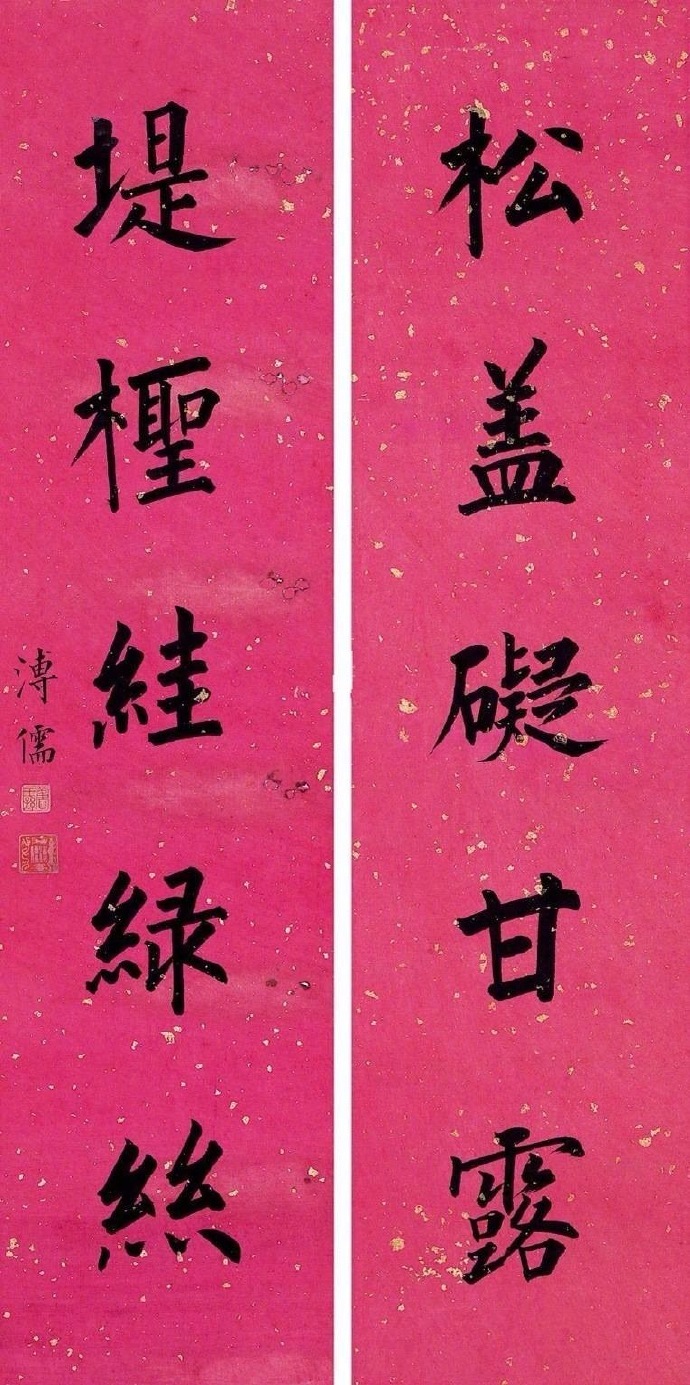 松盖礙甘露
堤檉絓緑絲
溥儒